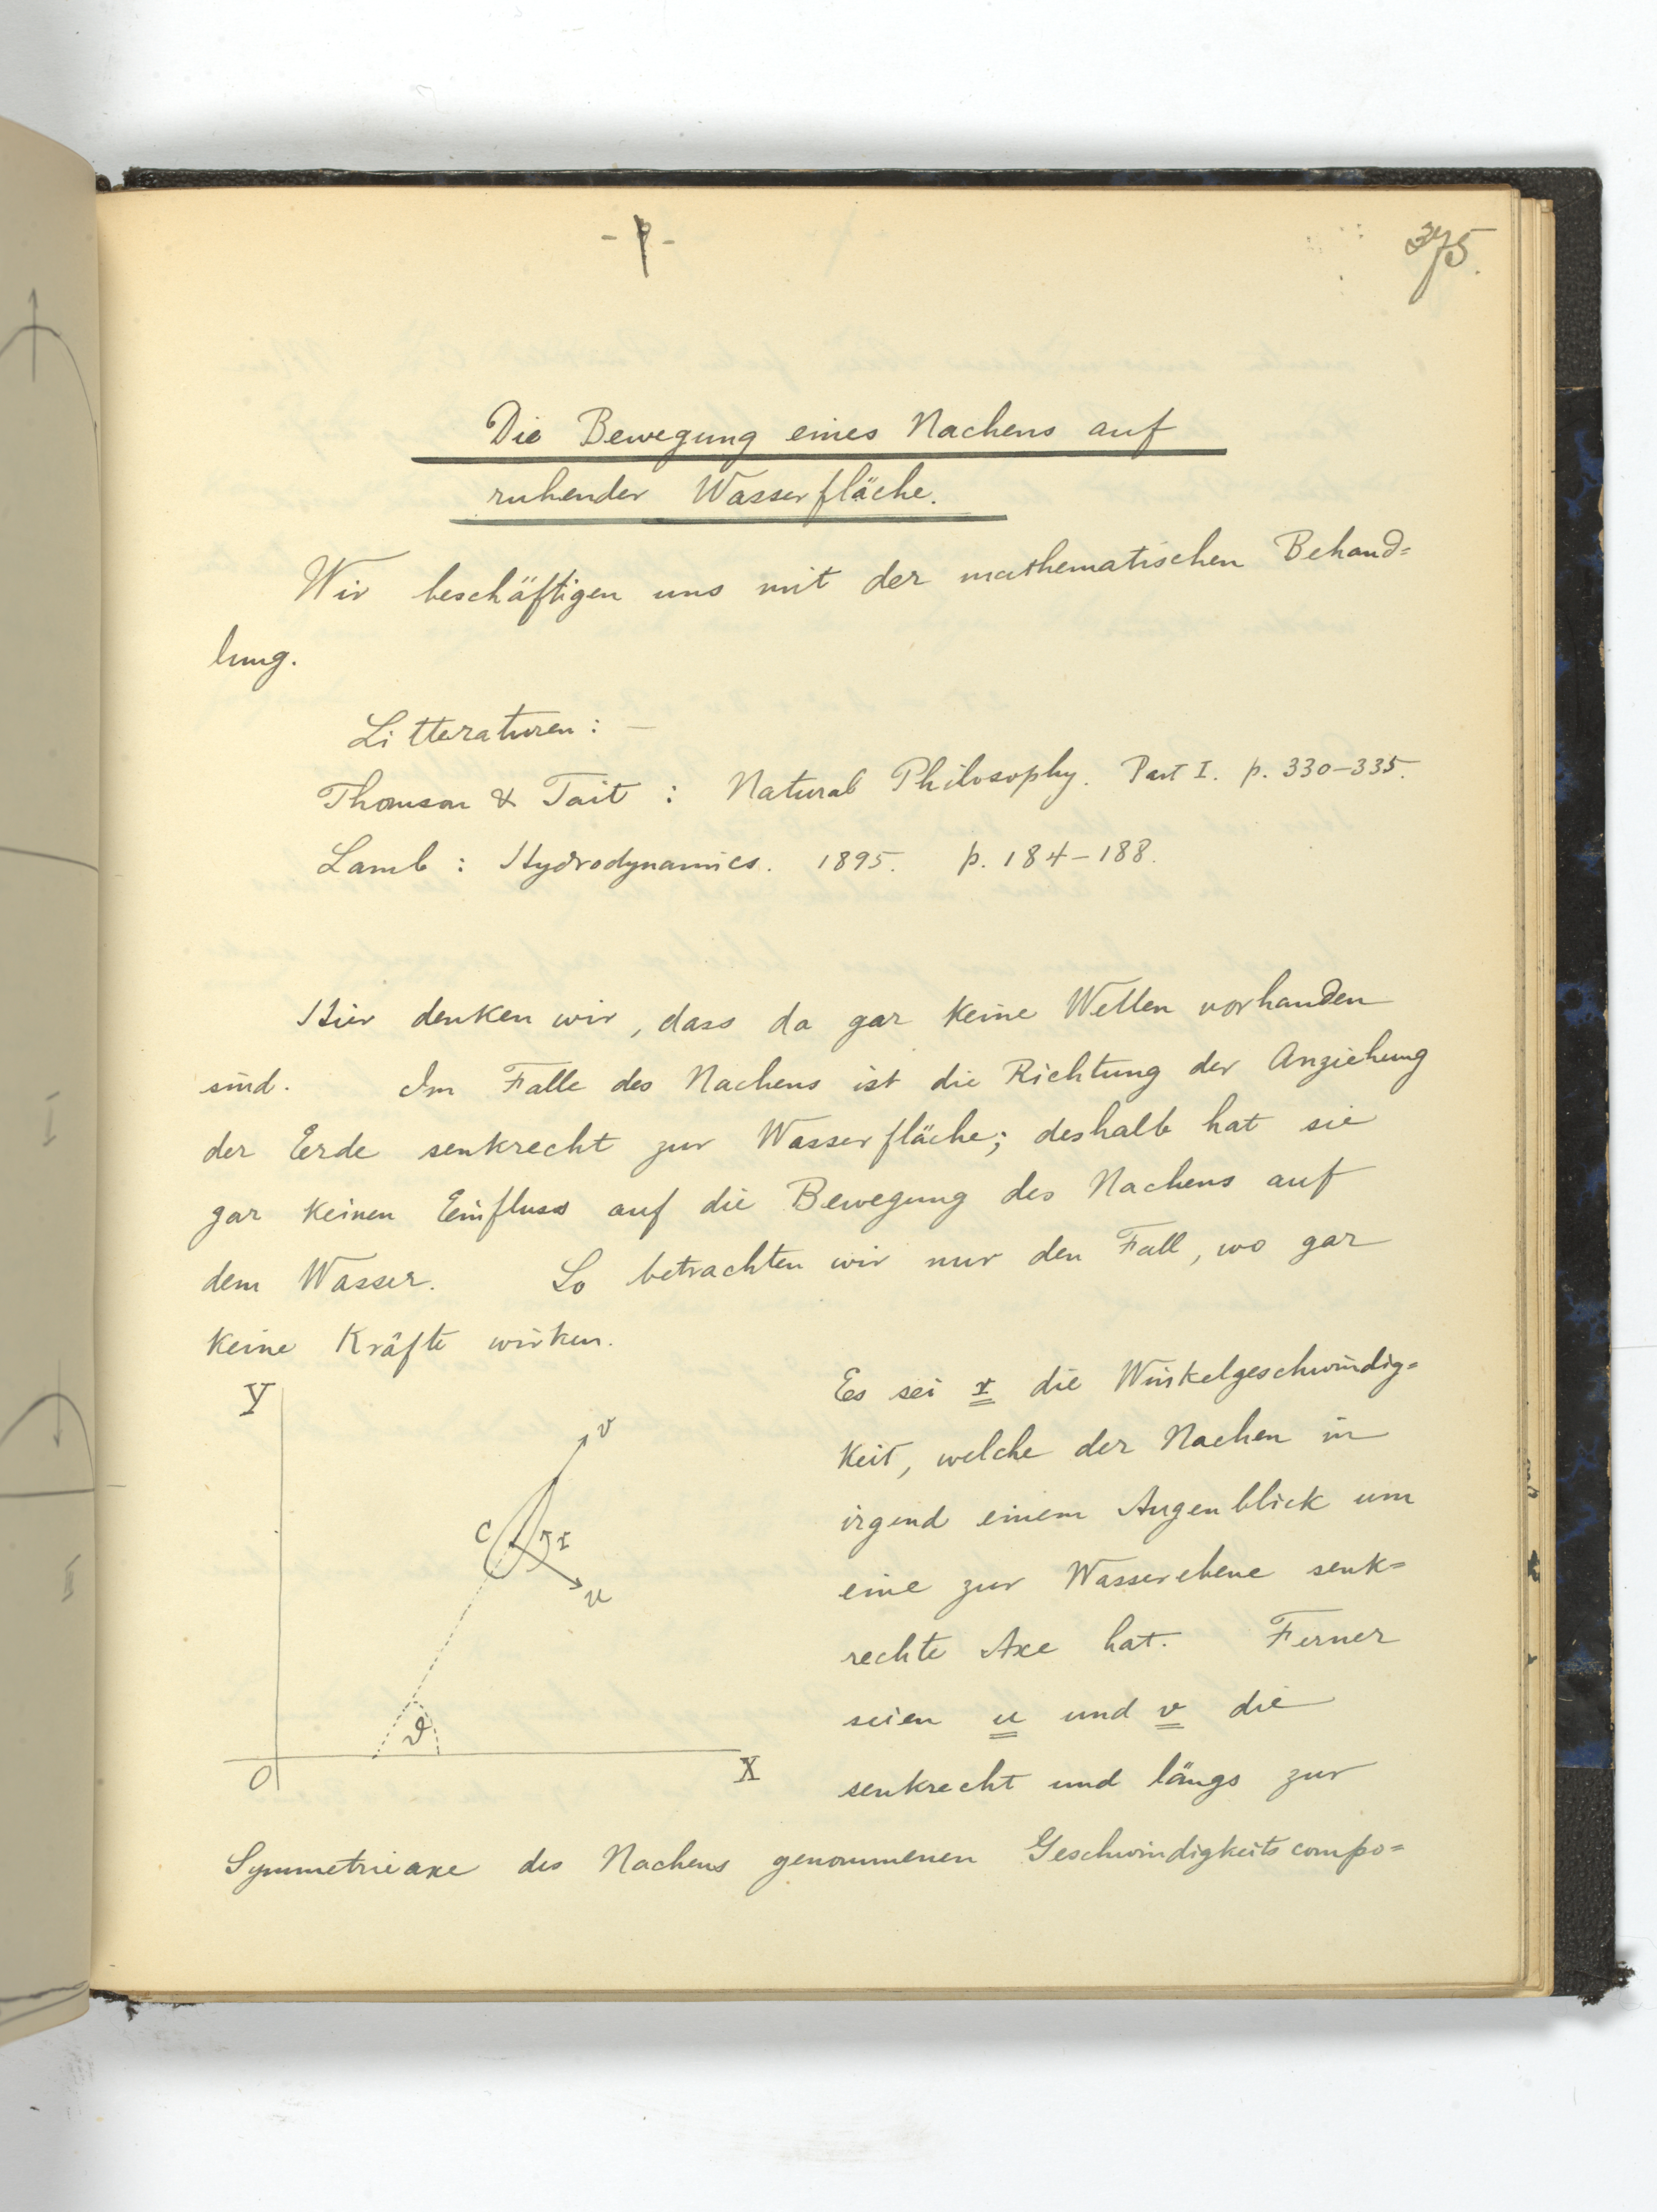 375.
Die Bewegung eines Nachens auf
ruhender Wasserfläche.
Wir beschäftigen uns mit der mathematischen Behand=
lung.
Litteraturen : —
Thomson & Tait : Natural Philosophy. Part I. p. 330–335.
Lamb : Hydrodynamics. 1895. p. 184–188.
Hier denken wir, dass da gar keine Wellen vorhanden
sind. Im Falle des Nachens ist die Richtung der Anziehung
der Erde senkrecht zur Wasserfläche; deshalb hat sie
gar keinen Einfluss auf die Bewegung des Nachens auf
dem Wasser. So betrachten wir nur den Fall, wo gar
keine Kräfte wirken.
Es sei r die Winkelgeschwindig=
keit, welche der Nachen in
irgend einem Augenblick um
eine zur Wasserebene senk=
rechte Axe hat. Ferner
seien u und v die
senkrecht und längs zur
Symmetrieaxe des Nachens genommenen Geschwindigkeitscompo=
Y
v
C
r
u
ϑ
O
X